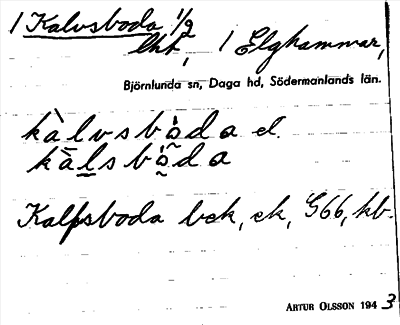 1 Kalvsboda 1/9
lht, 1 Elghammar,
Björnlunda sn, Daga hd, Södermanlands län.
kàlvsbòda el.
kālsbòda
Kalfsboda bek, ek, G66, kb.
ARTUR OLSSON 1943